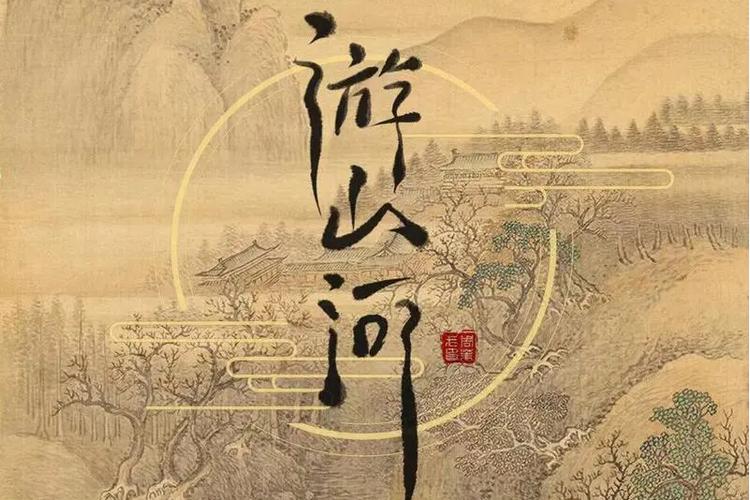 游山河